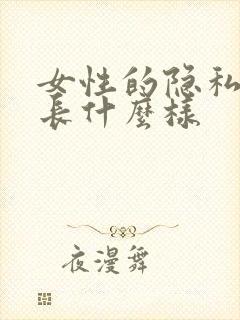 女性的隐私
長什麼樣
夜漫舞